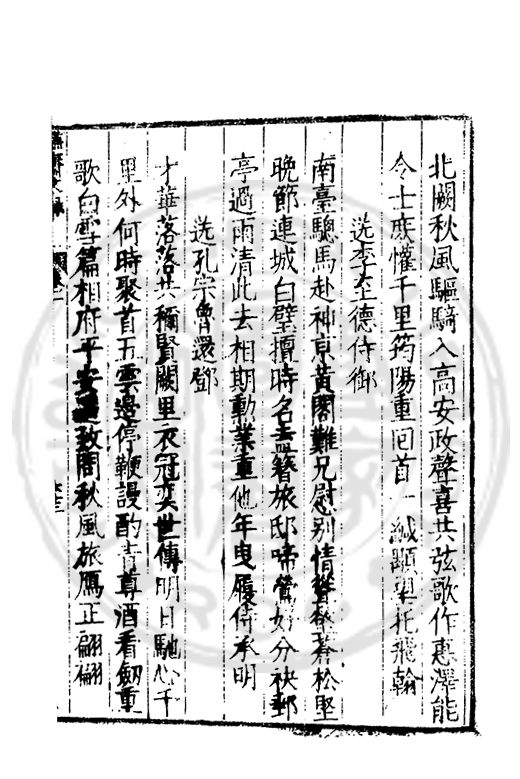 北闕秋風驅騎入高安政聲喜共弦歌作惠澤能
令士庶懽千里筠陽重回首一緘顒望托飛翰
送李至德侍御
南臺驄馬赴神京黃閣難兄慰別情蒼松堅
晚節連城白璧擅時名盍簪旅邸啼鶯好分袂郵
亭過雨清此去相期勳業重他年曳履侍承明
送孔宗魯還鄧
才華落落共稱賢闕里衣冠奕世傳明日馳心千
里外何時聚首五雲邊停鞭謾酌青尊酒看劒重
歌白雪篇相府平安致問秋風旅鴈正翩翩